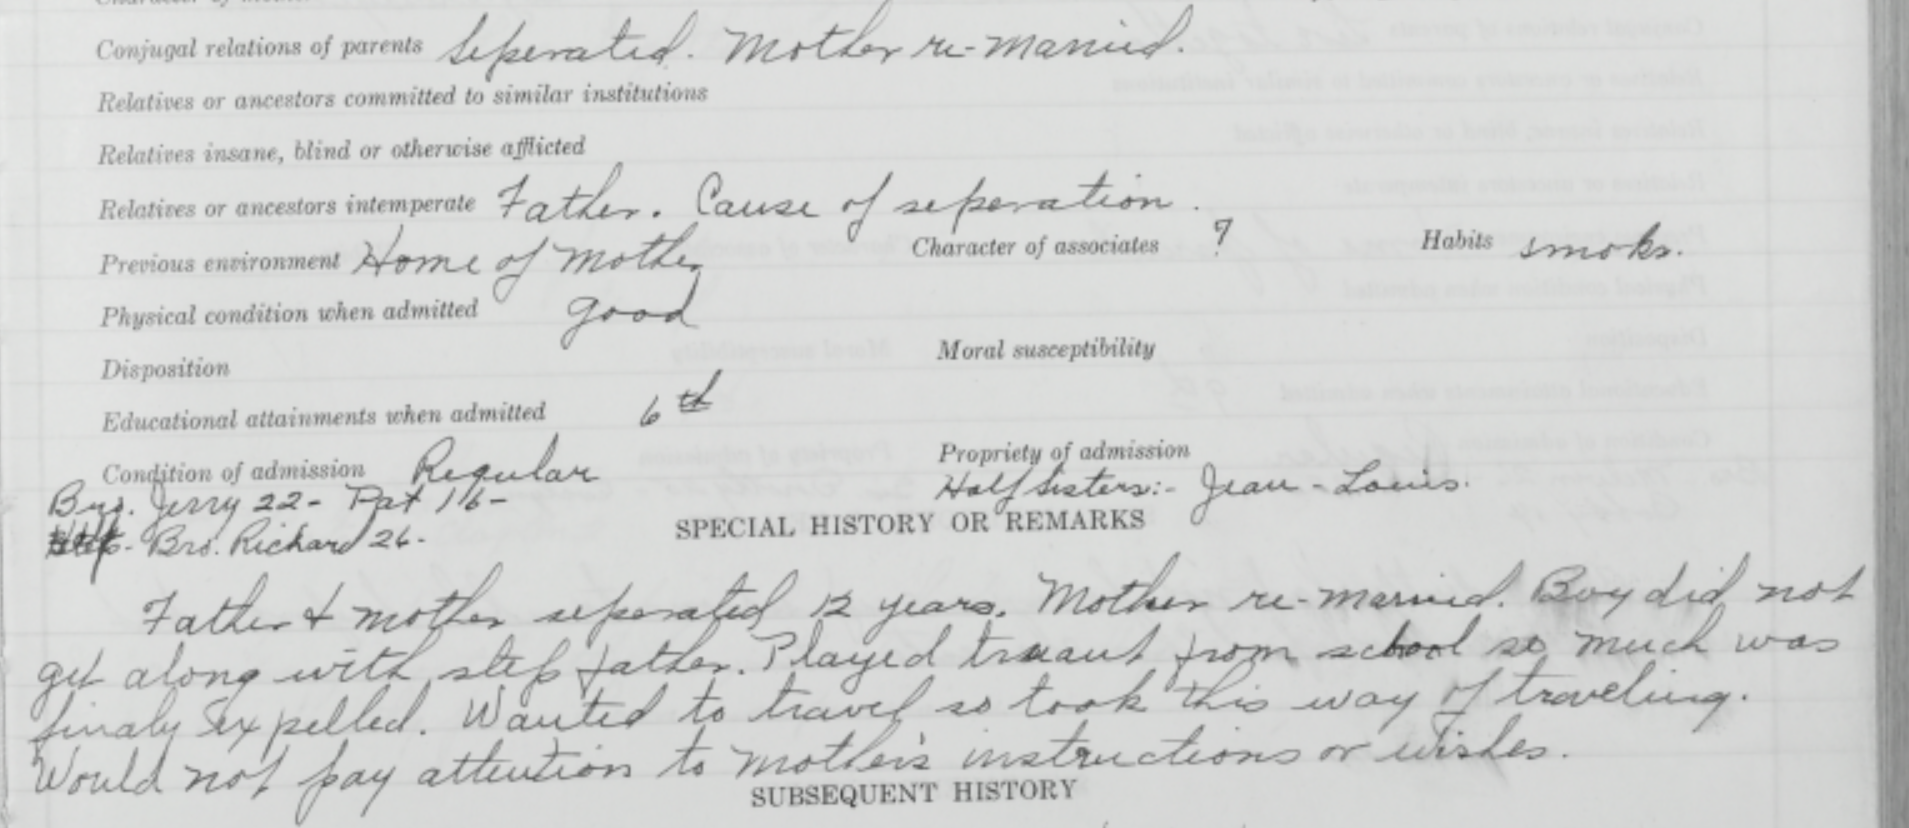 Conjugal relations of parents Seperated. Mother re-married.
Relatives or ancestors committed to similar institutions
Relatives insane, blind or otherwise afflicted
Relatives or ancestors intemperate Father. Cause of seperation.
Previous environment Home of Mother Character of associates ? Habits smoks.
Physical condition when admitted good
Disposition Moral susceptibility
Educational attainments when admitted 6th
Condition of admission Regular Propriety of admission
Bro. Jerry 22 - Pat 16 - Half Sisters:- Jean - Louis.
- Bro. Richard 26.
SPECIAL HISTORY OR REMARKS
Father & mother seperated 12 years. Mother re-married. Boy did not
get along with step father. Played truant from school so much was
finaly expelled. Wanted to travel so took this way of traveling.
Would not pay attention to Mother's instructions or wishes.
SUBSEQUENT HISTORY